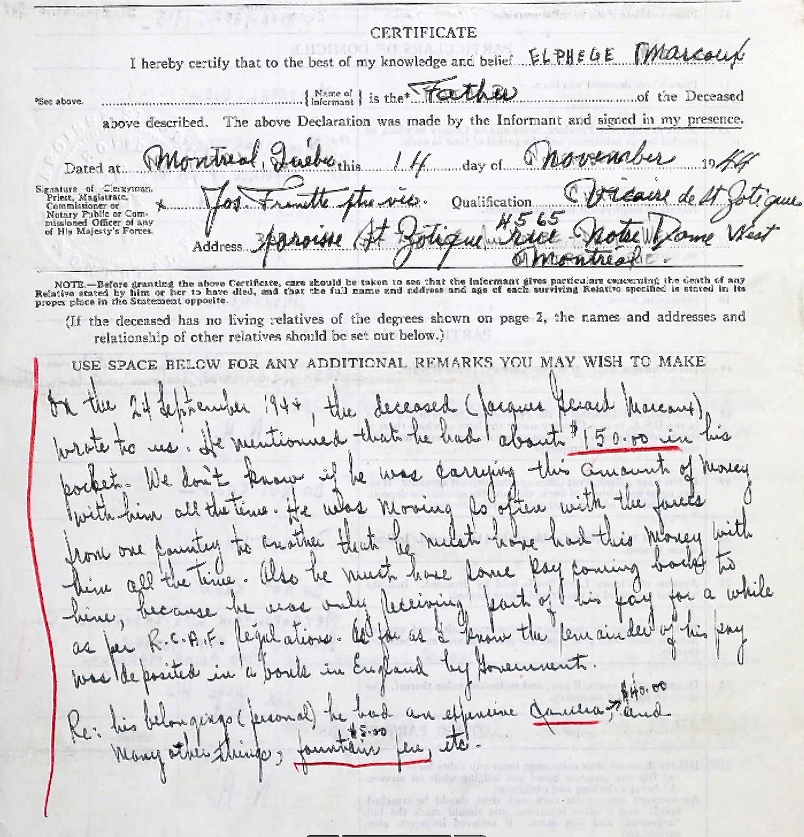 CERTIFICATE
I hereby certify that to the best of my knowledge and belief ELPHEGE Marcoux
*See above. {Name of Informant} is the* Father of the Deceased
above described. The above Declaration was made by the Informant and signed in my presence.
Dated at Montreal, Québec this 14 day of November 1944
Signature of Clergyman,
Priest, Magistrate,
Commissioner or
Notary Public or Com-
missioned Officer of any
of His Majesty's Forces.
* Jos Frenette ptre vic. Qualification Vicaire de St Zotique
Address paroisse St Zotique 4565 rue Notre Dame West
Montreal.
NOTE.—Before granting the above Certificate, care should be taken to see that the informant gives particulars concerning the death of any
Relative stated by him or her to have died, and that the full name and address and age of each surviving Relative specified is stated in its
proper place in the Statement opposite.
(If the deceased has no living relatives of the degrees shown on page 2, the names and addresses and
relationship of other relatives should be set out below.)
USE SPACE BELOW FOR ANY ADDITIONAL REMARKS YOU MAY WISH TO MAKE
On the 24 September 1944, the deceased (Jacques Gerard Marcoux)
wrote to us. He mentionned that he had about $150.00 in his
pocket. We don't know if he was carrying this amount of money
with him all the time. He was moving so often with the forces
from one country to another that he must have had this money with
him all the time. Also he must have some pay coming back to
him, because he was only receiving part of his pay for a while
as per R.C.A.F. regulations. As far as I know the remainder of his pay
was deposited in a bank in England by Government.
$40.00
Re: his belongings (personal) he had an expensive camera, and
$5.00
many other things, fountain pen, etc.